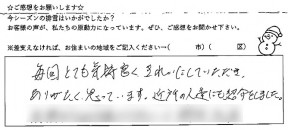 ☆ご感想をお願いします☆
今シーズンの掃除はいかがでしたか？
お客様の声が、私たちの原動力になっています。ぜひ、ご感想をお聞かせ下さい。
※差支えなければ、お住まいの地域をご記入ください→（　　　市）（　　　区）
毎回とても気持よくきれいにしていただき、
ありがたく思っています。近所の人達にも紹介しました。